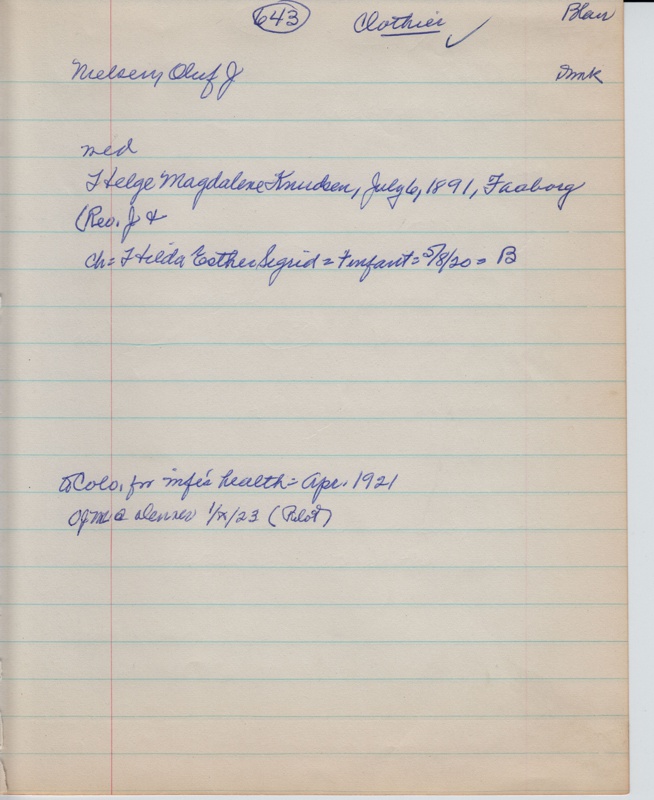 643 Clothier ✓ Blair
Nielsen, Oluf J Dmk
med
Helge Magdalene Knudsen, July 6, 1891, Faaborg
(Rev. J &
ch = Hilda Esther Sigrid = F infant = 5/8/20 = B
to Colo. for inf's health = Apr. 1921
OJM @ Denver 1/X/23 (Pilot)